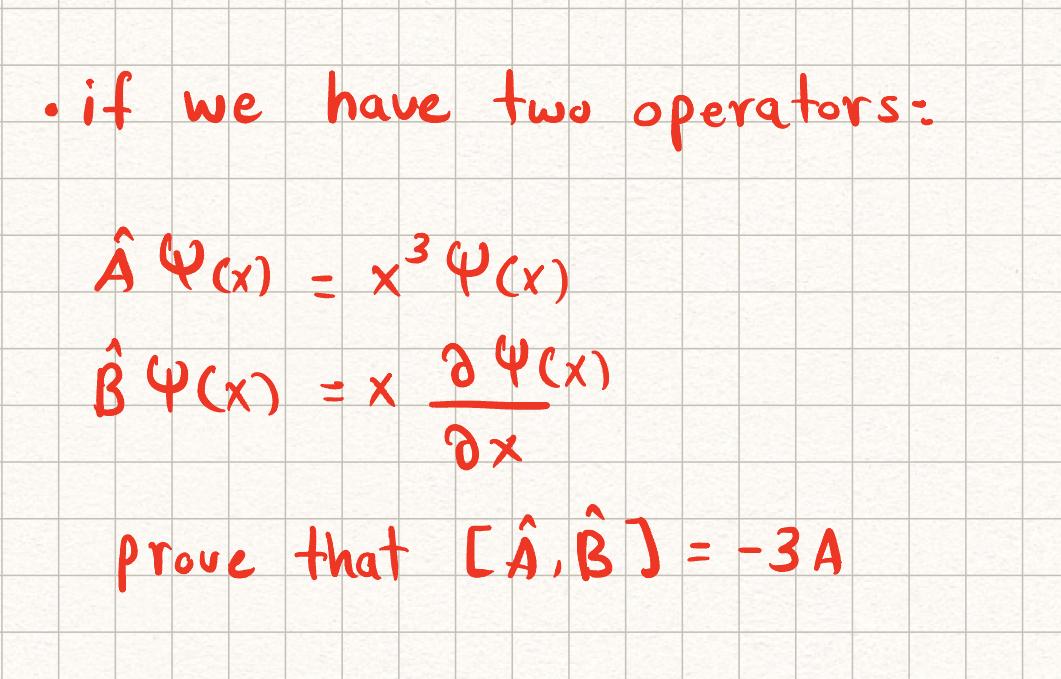 . if we have two operators:
Â Ψ(x) = x³ Ψ(x)
B̂ Ψ(x) = x ∂Ψ(x)/∂x
prove that [Â, B̂] = -3A